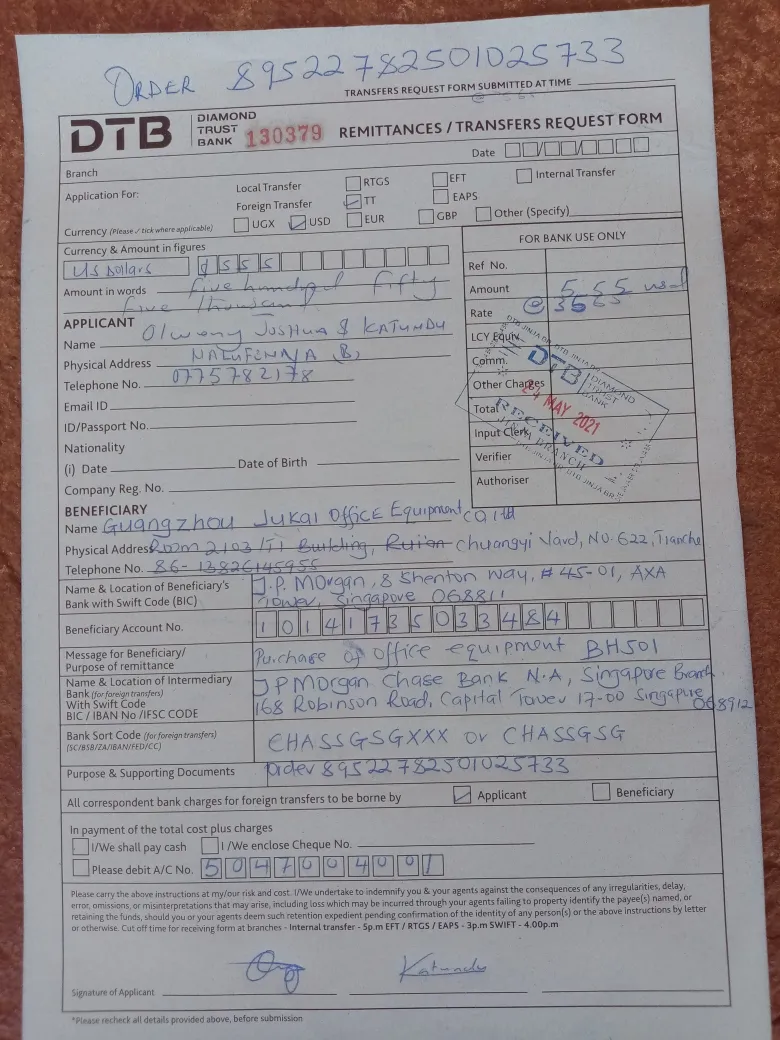 ORDER 895227782501025733
TRANSFERS REQUEST FORM SUBMITTED AT TIME
DTB DIAMOND TRUST BANK 130379 REMITTANCES / TRANSFERS REQUEST FORM
Date
Branch
Application For: Local Transfer RTGS EFT Internal Transfer
Foreign Transfer TT EAPS
Currency (Please ✓ tick where applicable) UGX USD EUR GBP Other (Specify)
Currency & Amount in figures
US Dollars 555
Amount in words five hundred fifty
five thousand
APPLICANT
Name Olweny Joshua & KATUNDU
Physical Address NALUFENYA (B)
Telephone No. 0775782178
Email ID
ID/Passport No.
Nationality
(i) Date Date of Birth
Company Reg. No.
FOR BANK USE ONLY
Ref No.
Amount 555 usd
Rate @ 3565
LCY Equiv.
Comm.
Other Charges
Total
Input Clerk
Verifier
Authoriser
DTB DIAMOND TRUST BANK
24 MAY 2021
RECEIVED
JINJA BRANCH
BENEFICIARY
Name Guangzhou Jukai Office Equipment co ltd
Physical Address Room 2103/T1 Building, Ruifan Chuangyi Yard, NO.622, Tianhe
Telephone No. 86-13826145955
Name & Location of Beneficiary's Bank with Swift Code (BIC)
J.P. Morgan, 8 Shenton Way, #45-01, AXA
Tower, Singapore 068811
Beneficiary Account No. 10141735033484
Message for Beneficiary/ Purpose of remittance
Purchase of office equipment BH501
Name & Location of Intermediary
Bank (for foreign transfers)
With Swift Code
BIC / IBAN No /IFSC CODE
JP Morgan Chase Bank N.A, Singapore Branch
168 Robinson Road, Capital Tower 17-00 Singapure 068912
Bank Sort Code (for foreign transfers)
(SC/BSB/ZA/IBAN/FED/CC)
CHASSGSGXXX or CHASSGSG
Purpose & Supporting Documents order 895227782501025733
All correspondent bank charges for foreign transfers to be borne by Applicant Beneficiary
In payment of the total cost plus charges
I/We shall pay cash I /We enclose Cheque No.
Please debit A/C No. 5047004001
Please carry the above instructions at my/our risk and cost. I/We undertake to indemnify you & your agents against the consequences of any irregularities, delay,
error, omissions, or misinterpretations that may arise, including loss which may be incurred through your agents failing to property identify the payee(s) named, or
retaining the funds, should you or your agents deem such retention expedient pending confirmation of the identity of any person(s) or the above instructions by letter
or otherwise. Cut off time for receiving form at branches - Internal transfer - 5p.m EFT / RTGS / EAPS - 3p.m SWIFT - 4.00p.m
Katundu
Signature of Applicant
*Please recheck all details provided above, before submission